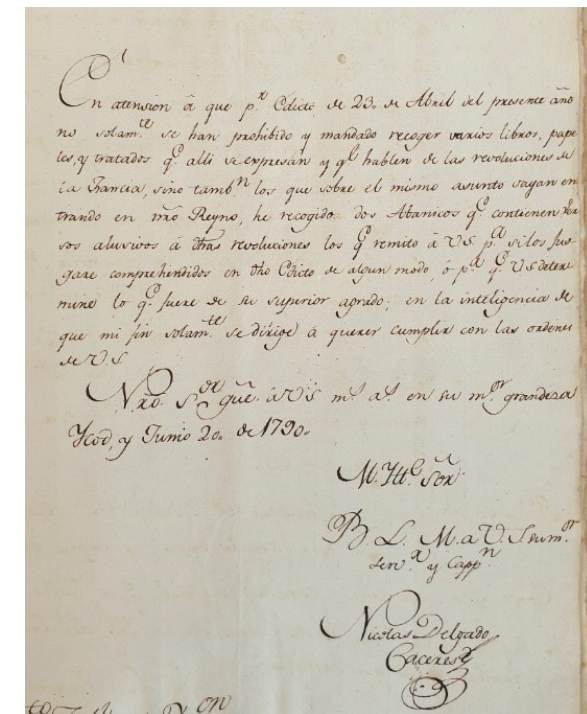 En atension â que p.r Edicto de 23. de Abril del presente año
no solam.te se han prohibido y mandado recoger varios libros, pape
les, y tratados q.e alli se expresan y q.e hablen de las revoluciones de
la Francia, sino tamb.n los que sobre el mismo asunto vayan en
trando en nrõ Reyno, he recogido dos Abanicos q.e contienen ver
sos alusivos â dhas revoluciones los q.e remito â VS p.a si los jus
gare comprehendidos en dho Edicto de algun modo, ô p.a q.e VS deter
mine lo q.e fuere de su superior agrado; en la inteligencia de
que mi fin solam.te se dirige â querer cumplir con las ordenes
de V.S.
Nrõ. S.or gũe. â VS m.s a.s en su m.or grandeza
Ycod, y Junio 20. de 1790.
M. Itt.e Sor
B. L. M. a V. S su m.or
serv.r y Capp.n
Nicolas Delgado
Caceres